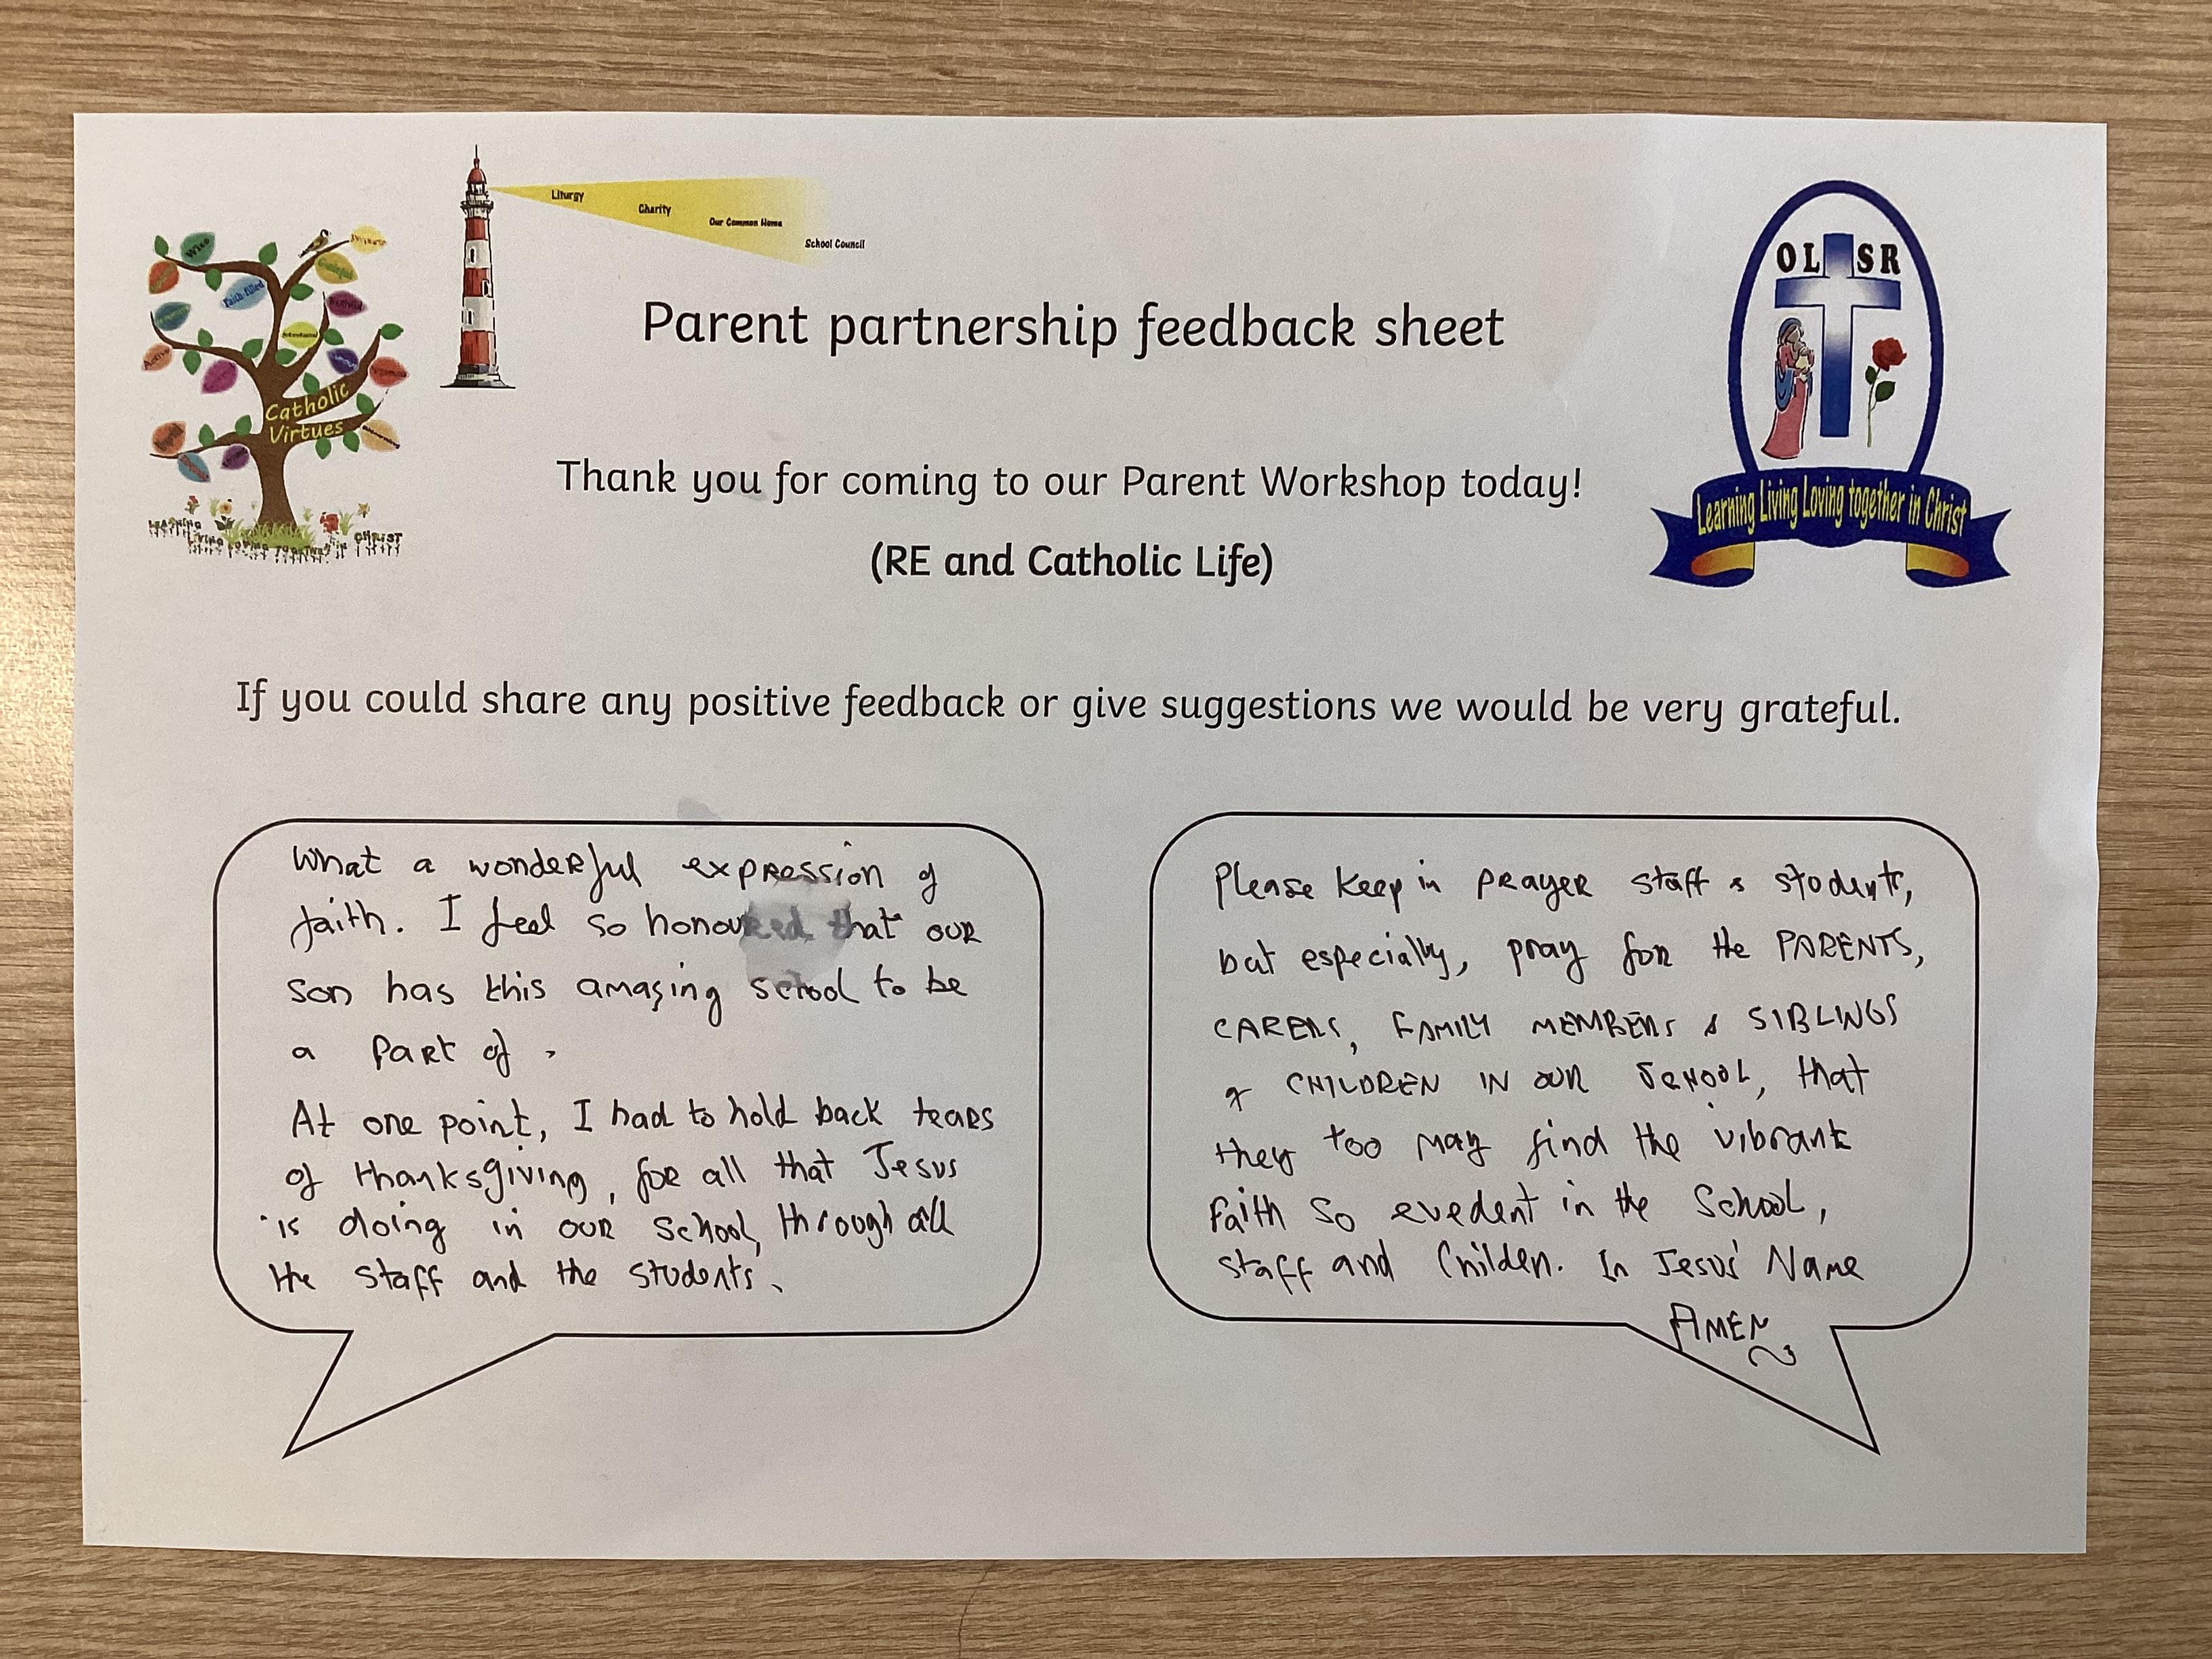 Liturgy
Charity
Our Common Home
School Council
Wise
Faith-filled
Catholic
Virtues
LEARNING
LIVING LOVING TOGETHER IN CHRIST
OLSR
Learning Living Loving together in Christ
Parent partnership feedback sheet
Thank you for coming to our Parent Workshop today!
(RE and Catholic Life)
If you could share any positive feedback or give suggestions we would be very grateful.
What a wonderful expression of
faith. I feel so honoured that our
son has this amazing school to be
a part of.
At one point, I had to hold back tears
of thanksgiving, for all that Jesus
is doing in our school, through all
the staff and the students.
Please keep in prayer staff & students,
but especially, pray for the PARENTS,
CARERS, FAMILY MEMBERS & SIBLINGS
of CHILDREN IN OUR SCHOOL, that
they too may find the vibrant
faith so evedent in the School,
staff and Childen. In Jesus' Name
AMEN